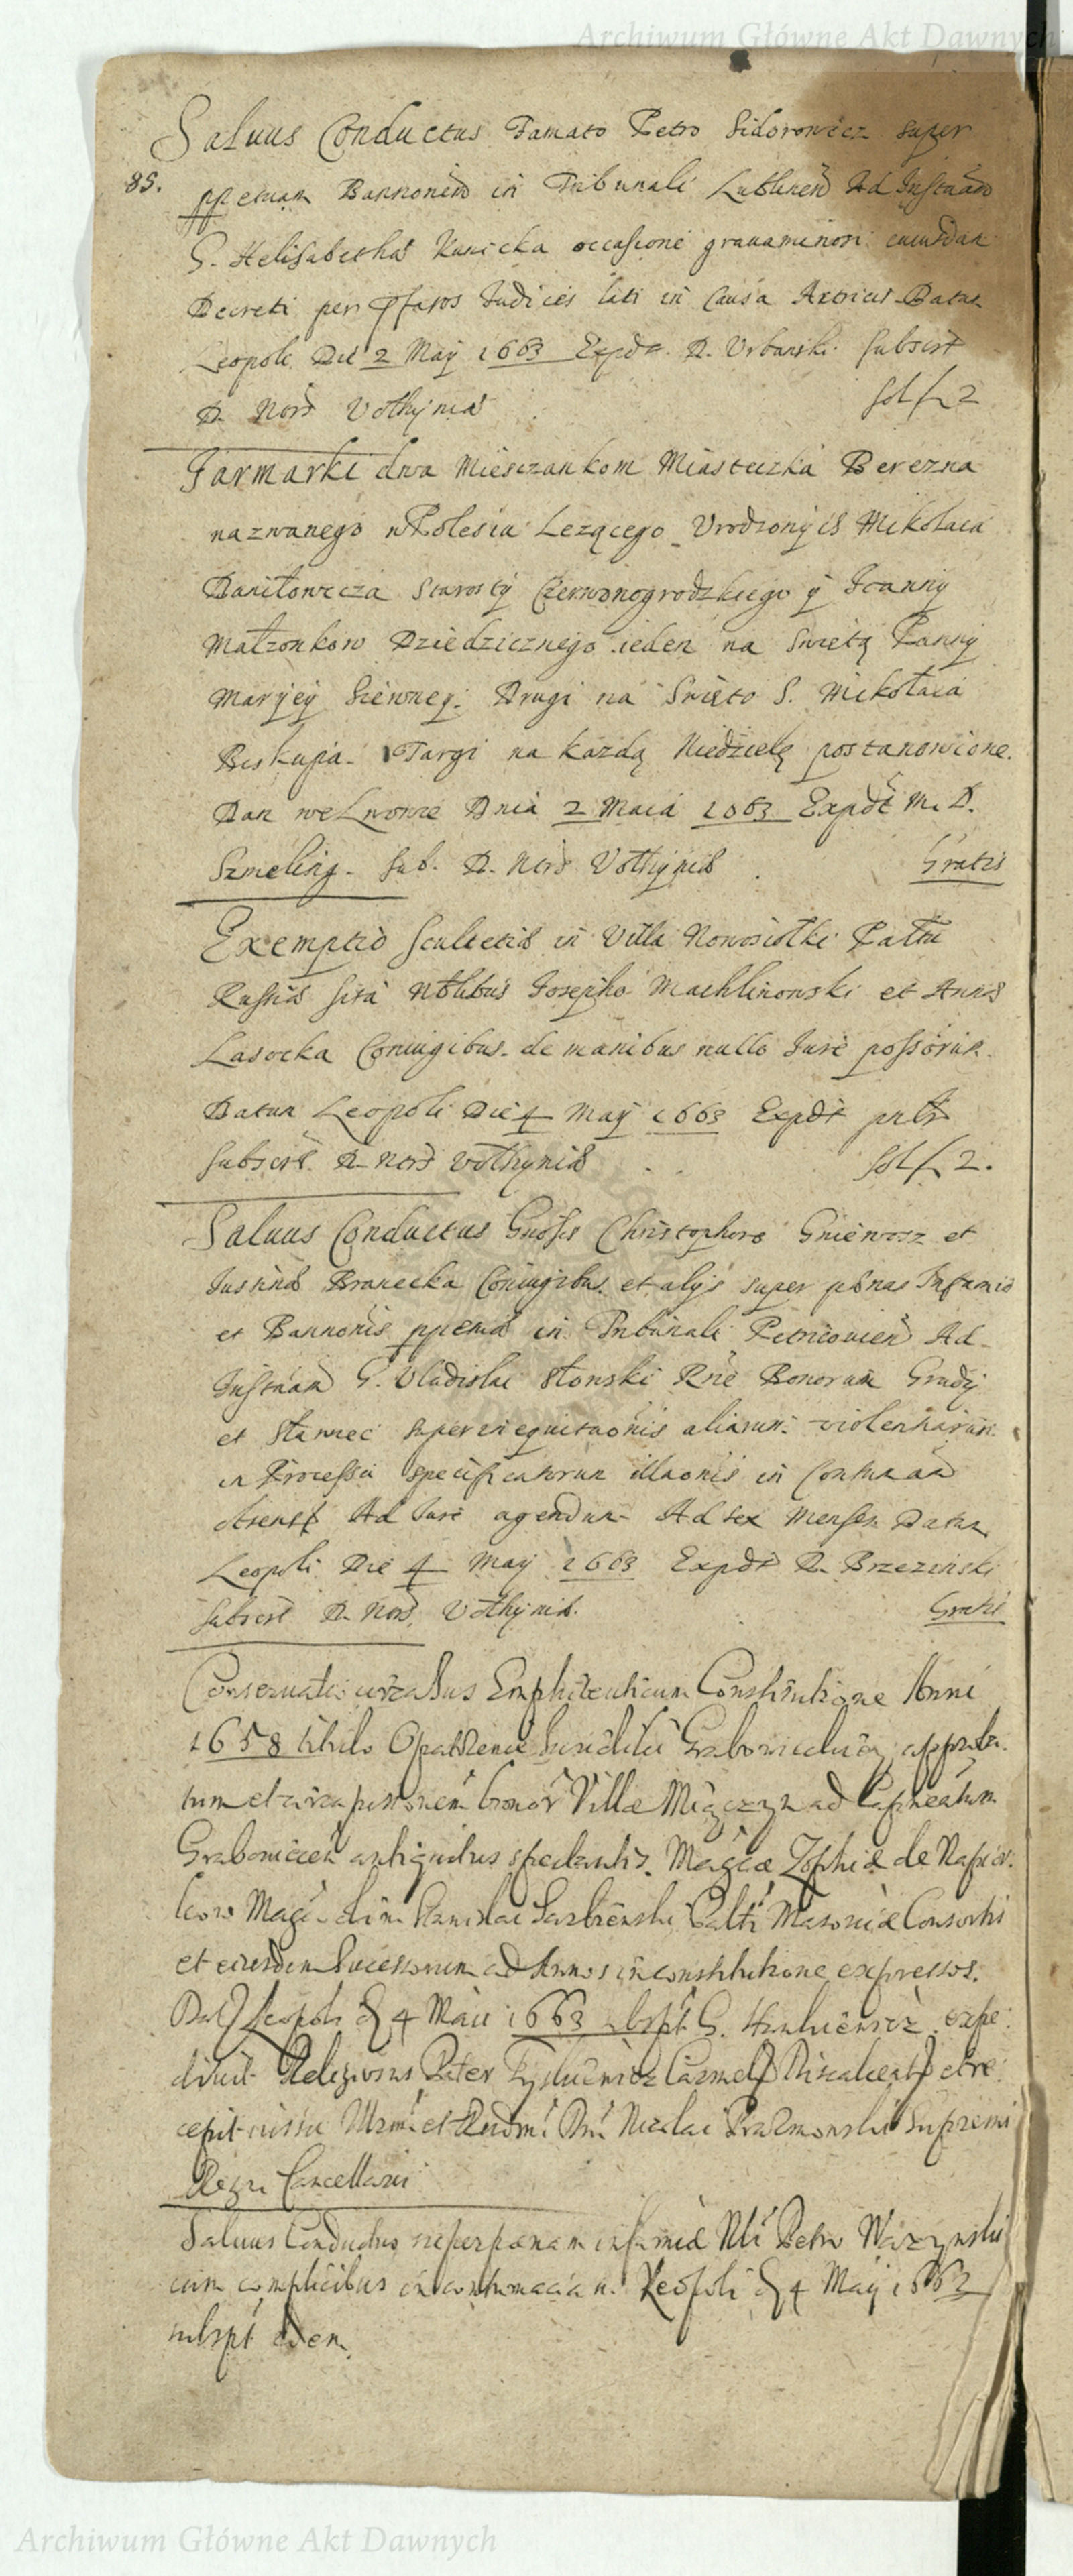 Archiwum Główne Akt Dawnych
Saluus Conductus Famato Petro Sidorowicz super
85.
ppetuam Bannonem in Tribunali Lublinen Ad Instnam
G. Helisabethae Kunicka occasione grauaminon: cuiusdam
Decreti per Pfatos Judices lati in Causa Datum
Leopoli Die 2 Maij 1663 Expdt. D. Urbanski Subscrt
D. Nord Volhyniae
Sol f 2
Jarmarki dwa Miesczankom Miasteczka Berezna
nazwanego w Polesiu Lezącego Vrodzonych Mikołaia
Daniłowicza Starosty Czerwonogrodzkiego y Joanny
Małzonkow Dziedzicznego ieden na Swięta Panny
Maryey Siewney. Drugi na Swięto S. Mikołaia
Biskupa. Targi na kazdą Niedzielę postanowione.
Dan we Lwowie Dnia 2 Maia 1663 Expdt M. D.
Szmeling. Sub. D. Nord Volhyniae
Gratis
Exemptio Scultetiae in Villa Nowosiołki Palttu
Russiae sita Nblibus Josepho Machlinowski et Annae
Lasocka Coniugibus de manibus nullo Jure possorum
Datum Leopoli Die 4 Maij 1663 Expdt
Subscrt. D. Nord Volhyniae
Sol f 2.
Saluus Conductus Gnosis Christophoro Gniewosz et
Justinae Branecka Coniugibus et alys super paenas Infamiae
et Bannonis ppetuae in Tribunali Petricouien Ad
Instnam G. Vladislai Słonski Rne Bonorum
et super inequitaonis aliarum violentiarum
in Processu specificatorum illaonis in Contumaam
Ad Jure agendum Ad sex Menses Datum
Leopoli Die 4 Maij 1663 Expdt D. Brzezinski
Subscrt D. Nord Volhyniae.
Gratis
Conseruatio circa Jus Emphiteuticum Constitutione Anni
1658 titulo Opatrzenie approba-
tum et circa possionem bonor Villae Miączyn ad Capneatum
Grabouicen antiquitus spectantis. Magcae Zophiae de
Magci olim Stanislai Sarbiewski Palti Masouiae Consortis
et eiusdem Successorum ad Annos in constitutione expressos.
Dat Leopoli D 4 Maii 1663 subspt G. expe-
diuit Religiosus Pater Tyszkiewicz Carmelit Discalceat et re-
cepit iussu Illrmi et Rndmi Dni Nicolai Prazmowski Supremi
Regni Cancellarii
Saluus Conductus super paenam infamiae Nbli Petro Wazynski
cum complicibus in contumaciam. Leopoli D 4 Maij 1663
subspt idem.
Archiwum Główne Akt Dawnych